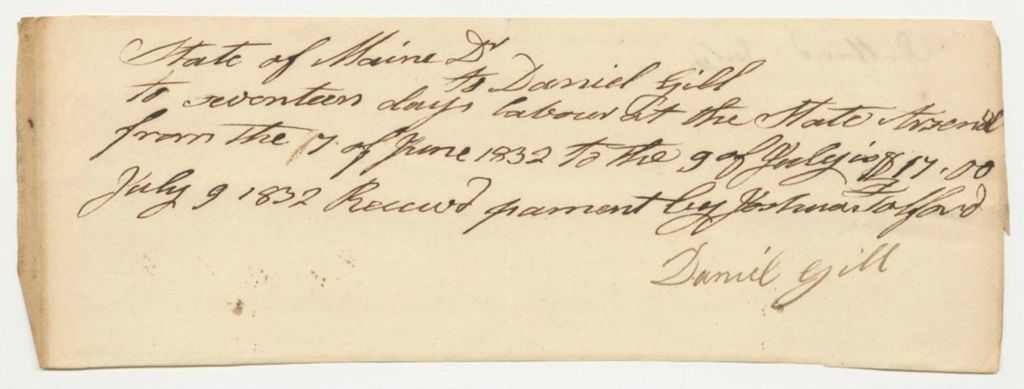 State of Maine Dr
to Daniel Gill
to seventeen days labour at the State Arsenal
from the 7 of June 1832 to the 9 of July is $17.00
July 9 1832 Receivd pament by Joshua Tolford
Daniel Gill